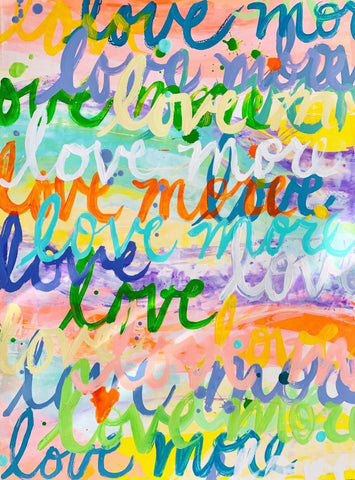 love mo
love more
ove love m
love more
love more
love more
love love
love
love
love more
love more